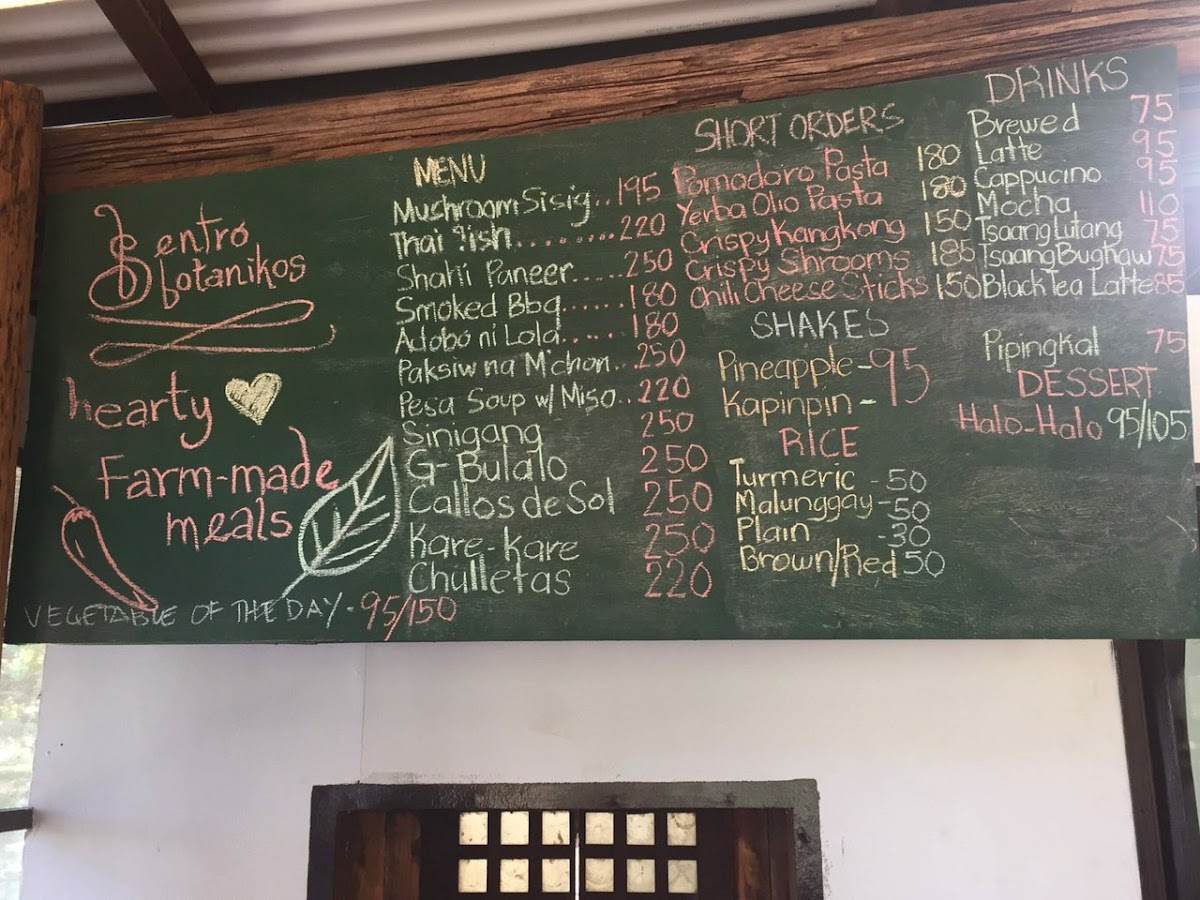 Sentro
botanikos
hearty
Farm-made
meals
VEGETABLE OF THE DAY - 95/150
MENU
Mushroom Sisig.. 195
Thai ?ish......... 220
Shahi Paneer..... 250
Smoked Bbq...... 180
Adobo ni Lola...... 180
Paksiw na M'chon.. 250
Pesa Soup w/ Miso.. 220
Sinigang 250
G-Bulalo 250
Callos de Sol 250
Kare-Kare 250
Chulletas 220
SHORT ORDERS
Pomodoro Pasta 180
Yerba Olio Pasta 180
Crispy Kangkong 150
Crispy Shrooms 185
Chili Cheese Sticks 150
SHAKES
Pineapple - 95
Kapinpin -
RICE
Turmeric - 50
Malunggay - 50
Plain - 30
Brown/Red 50
DRINKS
Brewed 75
Latte 95
Cappucino 95
Mocha 110
Tsaang Lutang 75
Tsaang Bughaw 75
Black Tea Latte 85
Pipingkal 75
DESSERT
Halo-Halo 95/105